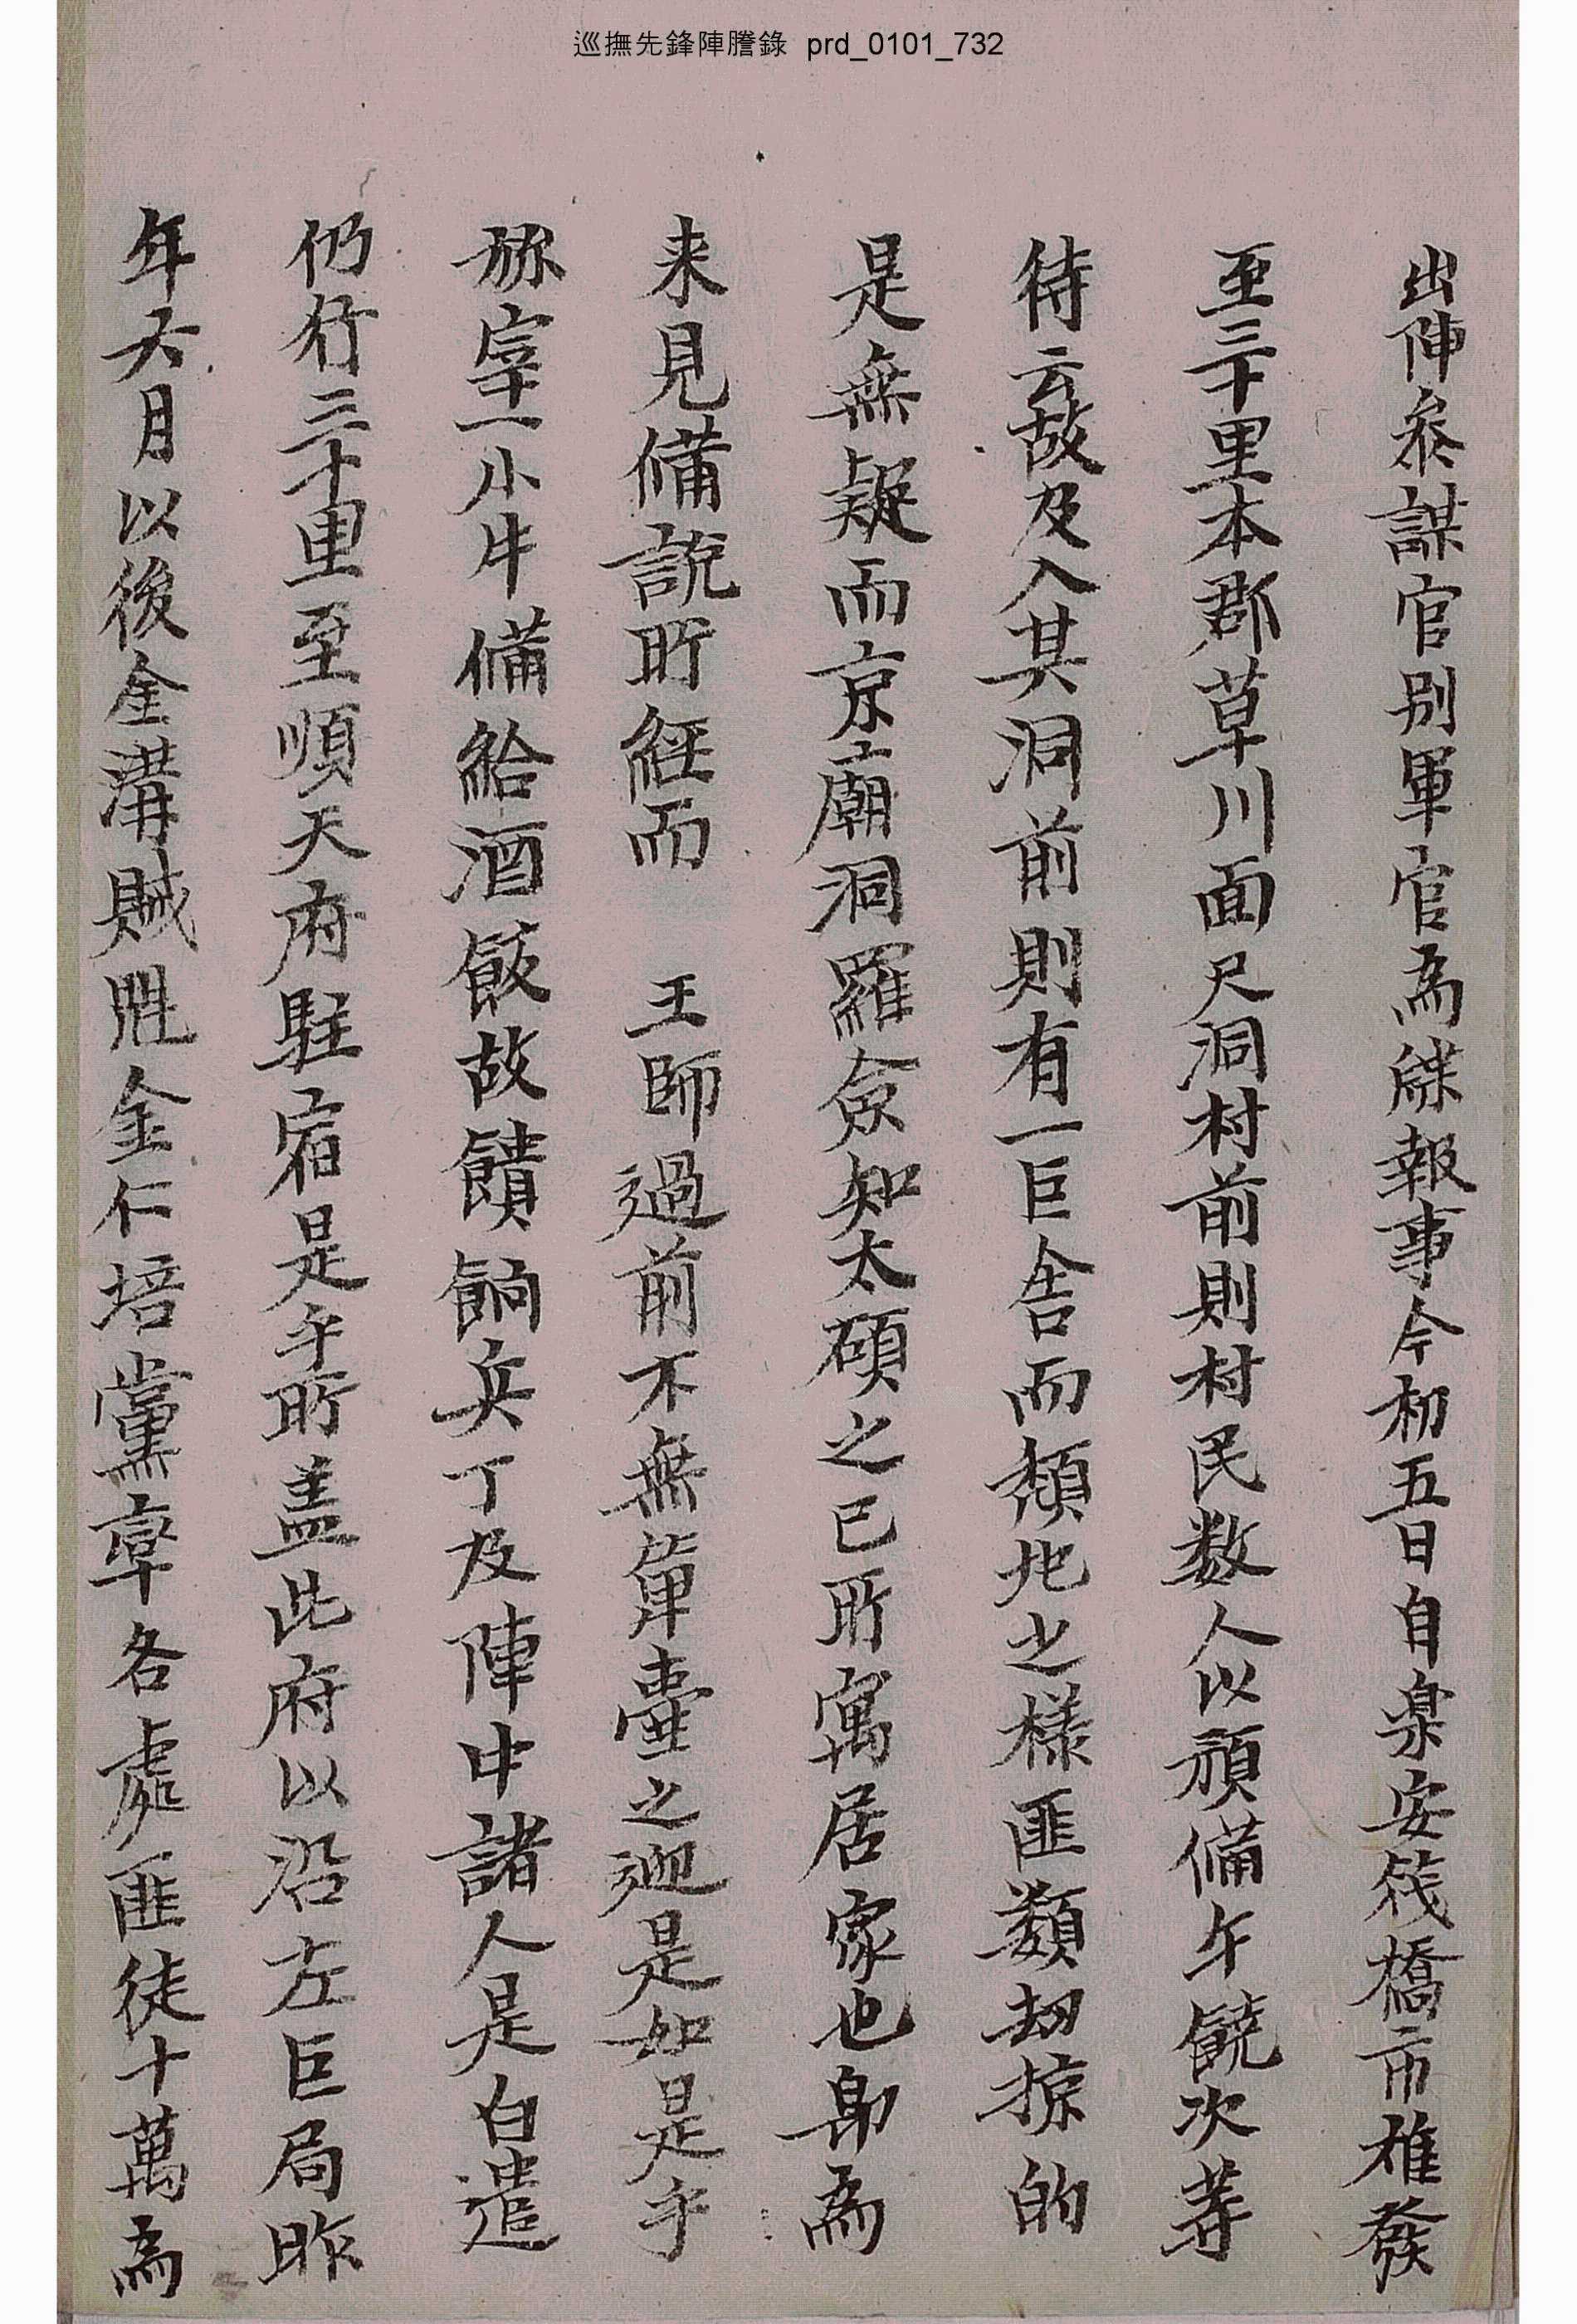 巡撫先鋒陣謄錄 prd_0101_732
出陣叅謀官別軍官爲牒報事今初五日自樂安筏橋市離發
至三十里本郡草川面尺洞村前則村民数人以頎備午饒次苐
待云故及入其洞前則有一巨舍而頹圮之樣匪類刼掠的
是無疑而京廟洞羅僉知太碩之已所寓居家也卽爲
来見備說所經而 王師過前不無簞壺之迎是如是乎
旀宰一小牛備給酒飯故饋餉兵丁及陣中諸人是白遣
仍行三十里至順天府駐宿是乎所盖此府以沿左巨局昨
年六月以後金溝賊魁金仁培黨率各處匪徒十萬爲